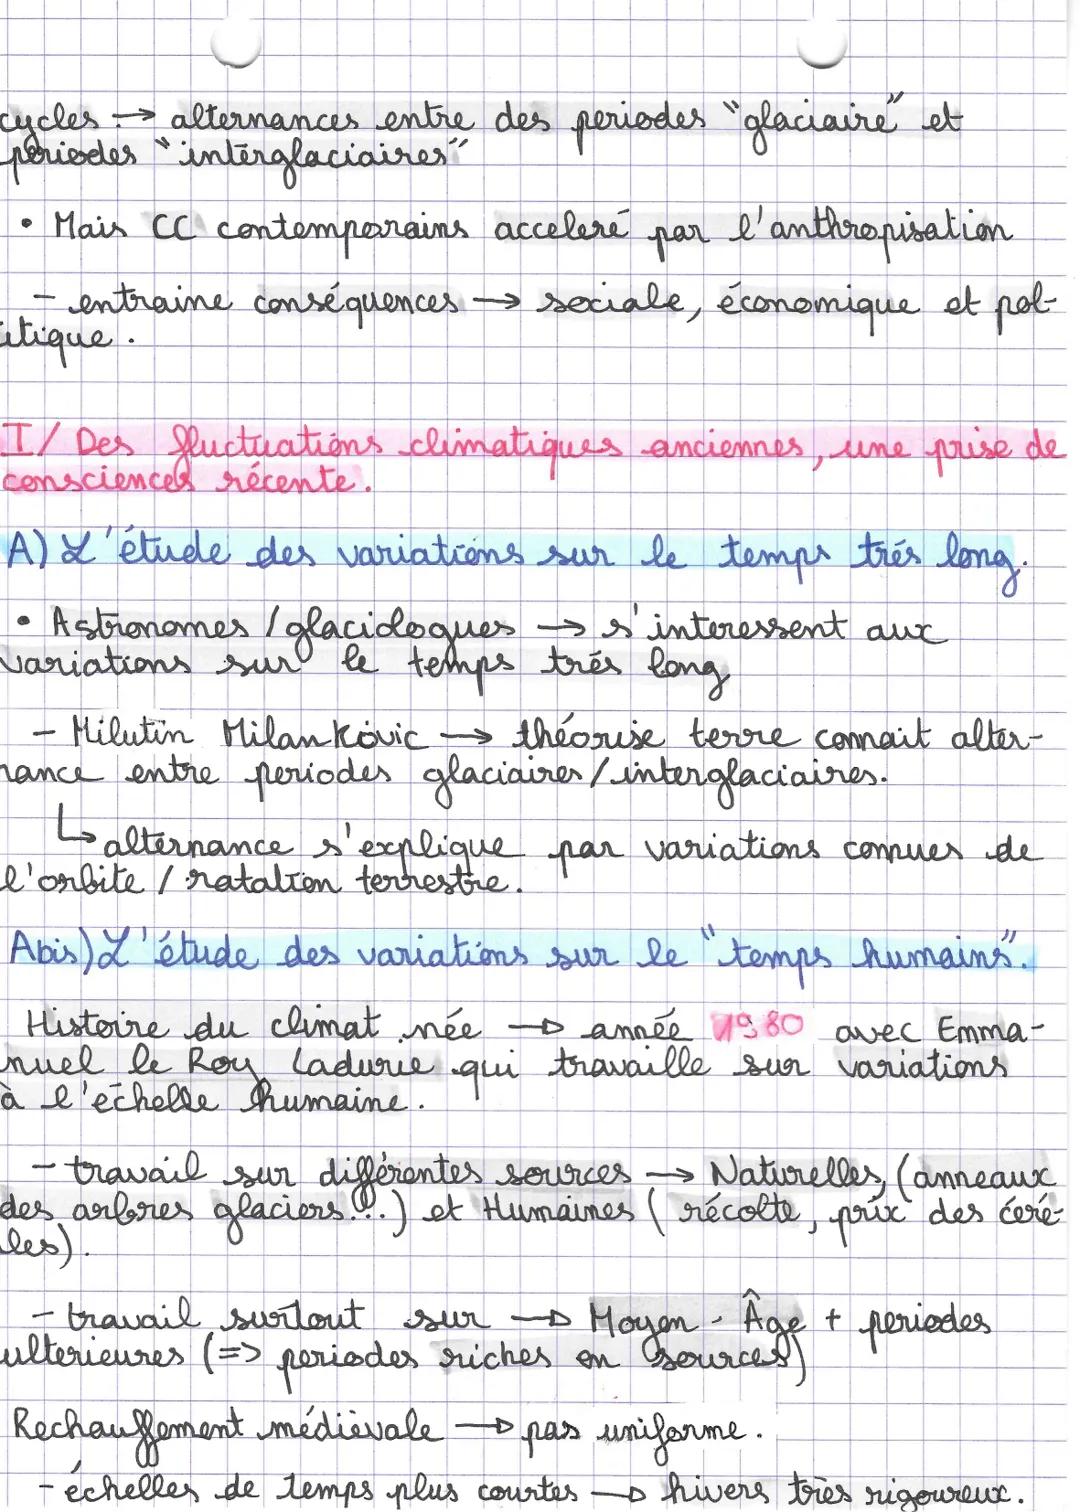 cycles → alternances entre des periodes "glaciaire" et
périodes "interglaciaires"
• Mais CC contemporains acceleré par l'anthropisation
- entraine conséquences → sociale, économique et pol-
itique.
I/ Des fluctuations climatiques anciennes, une prise de
consciences récente.
A) L'étude des variations sur le temps trés long.
• Astronomes / glaciologues → s'interessent aux
variations sur le temps trés long
- Milutin Milankovic → théorise terre connait alter-
nance entre periodes glaciaires / interglaciaires.
↳ alternance s'explique par variations connues de
l'orbite / ratation terrestre.
Abis) L'étude des variations sur le "temps humains".
Histoire du climat née → année 1980 avec Emma-
nuel le Roy Ladurie qui travaille sur variations
à l'échelle humaine.
- travail sur différentes sources → Naturelles, (anneaux
des arbres glaciers...) et Humaines ( récolte, prix des céré-
les).
- travail surtout sur → Moyen-Âge + periodes
ulterieures (=> periodes riches en sources)
Rechauffement médiévale → pas uniforme.
- échelles de temps plus courtes → hivers très rigoureux.